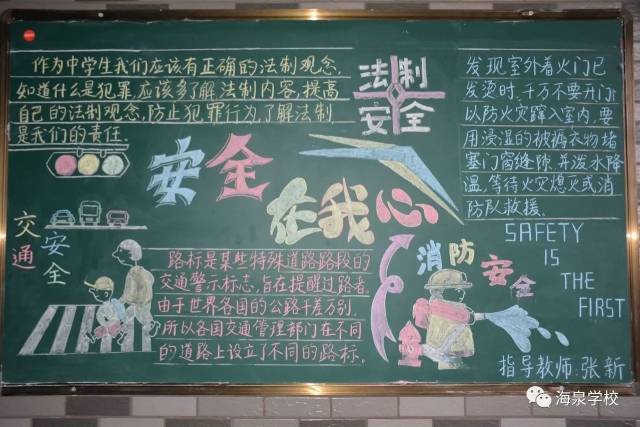 作为中学生我们应该有正确的法制观念.
知道什么是犯罪.应该多了解法制内容,提高
自己的法制观念,防止犯罪行为,了解法制
是我们的责任
法制
安全
发现室外着火门已
发烫时,千万不要开门,
以防火灾蹿入室内,要
用浸湿的被褥衣物堵
塞门窗缝隙,并泼水降
温,等待火灾熄灭或消
防队救援。
安全
在我心
交通
安全
路标是某些特殊道路路段的
交通警示标志,旨在提醒过路者.
由于世界各国的公路千差万别,
所以各国交通管理部门在不同
的道路上设立了不同的路标。
消防安全
SAFETY
IS
THE
FIRST
指导教师:张新
海泉学校